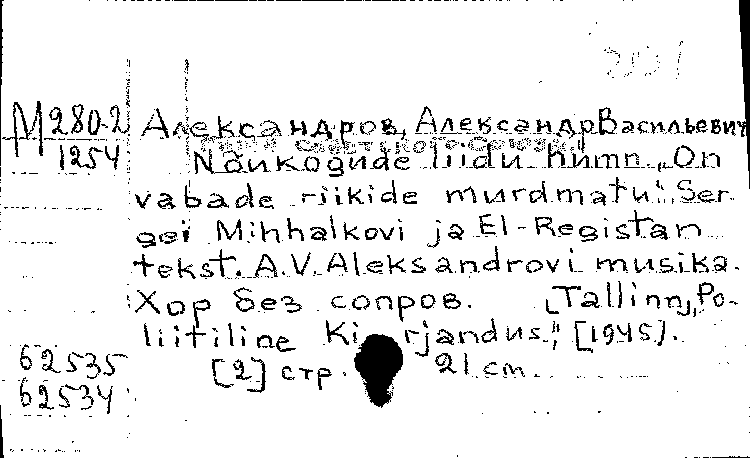 М280-2
1254
Александров, Александр Васильевич
Гимн Советского Союза
Nõukogude liidu hümn „On
vabade riikide murdmatu". Ser-
gei Mihhalkovi ja El-Registan
tekst. A.V. Aleksandrovi musika.
Хор без сопров. [Tallinn], Po-
liitiline Ki rjandus", [1945].
[2] стр. 21 cm.
62535
62534